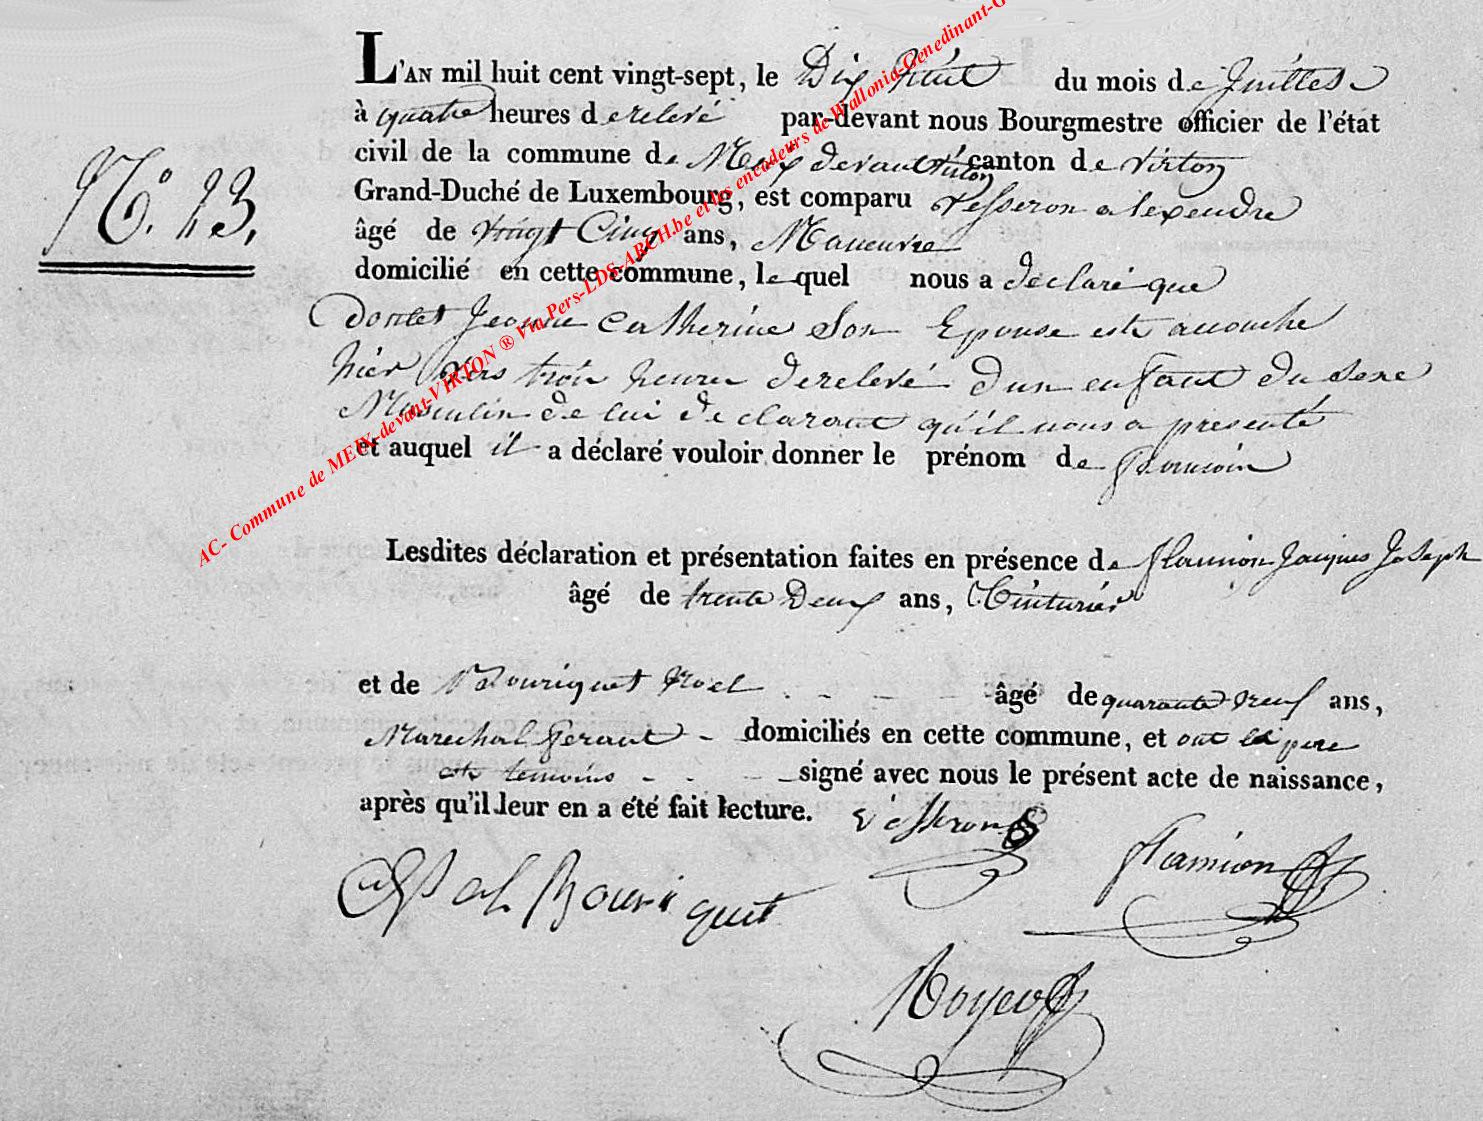 N.° 23.
L'AN mil huit cent vingt-sept, le Dix huit du mois de Juillet
à quatre heures de relevé par-devant nous Bourgmestre officier de l'état
civil de la commune de Meix devant Virton canton de Virton
Grand-Duché de Luxembourg, est comparu Vesseron alexendre
âgé de Vingt Cinq ans, Maneuvre
domicilié en cette commune, le quel nous a declaré que
Jeanne Catherine Son Epouse est accouché
hier vers trois heures de relevé d'un enfant du sexe
Masculin de lui declarant qu'il nous a presenté
et auquel il a déclaré vouloir donner le prénom de François
Lesdites déclaration et présentation faites en présence de flamion Jacques Joseph
âgé de trente Deux ans, Teinturier
et de Bouriquet Noel - - - - âgé de quarante neuf ans,
Marechal ferant - domiciliés en cette commune, et ont le pere
et temoins - - - signé avec nous le présent acte de naissance,
après qu'il leur en a été fait lecture.
Vesseron
flamion
Bouriquet
AC- Commune de MEIX-devant-VIRTON ® Via Pers-LDS-ARCH.be et les encodeurs de Wallonia-Genedinant-G